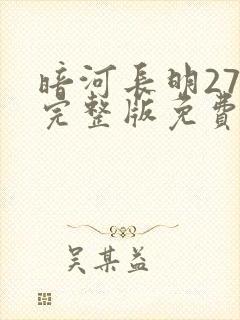 暗河长明27
完整版免費
吴某益